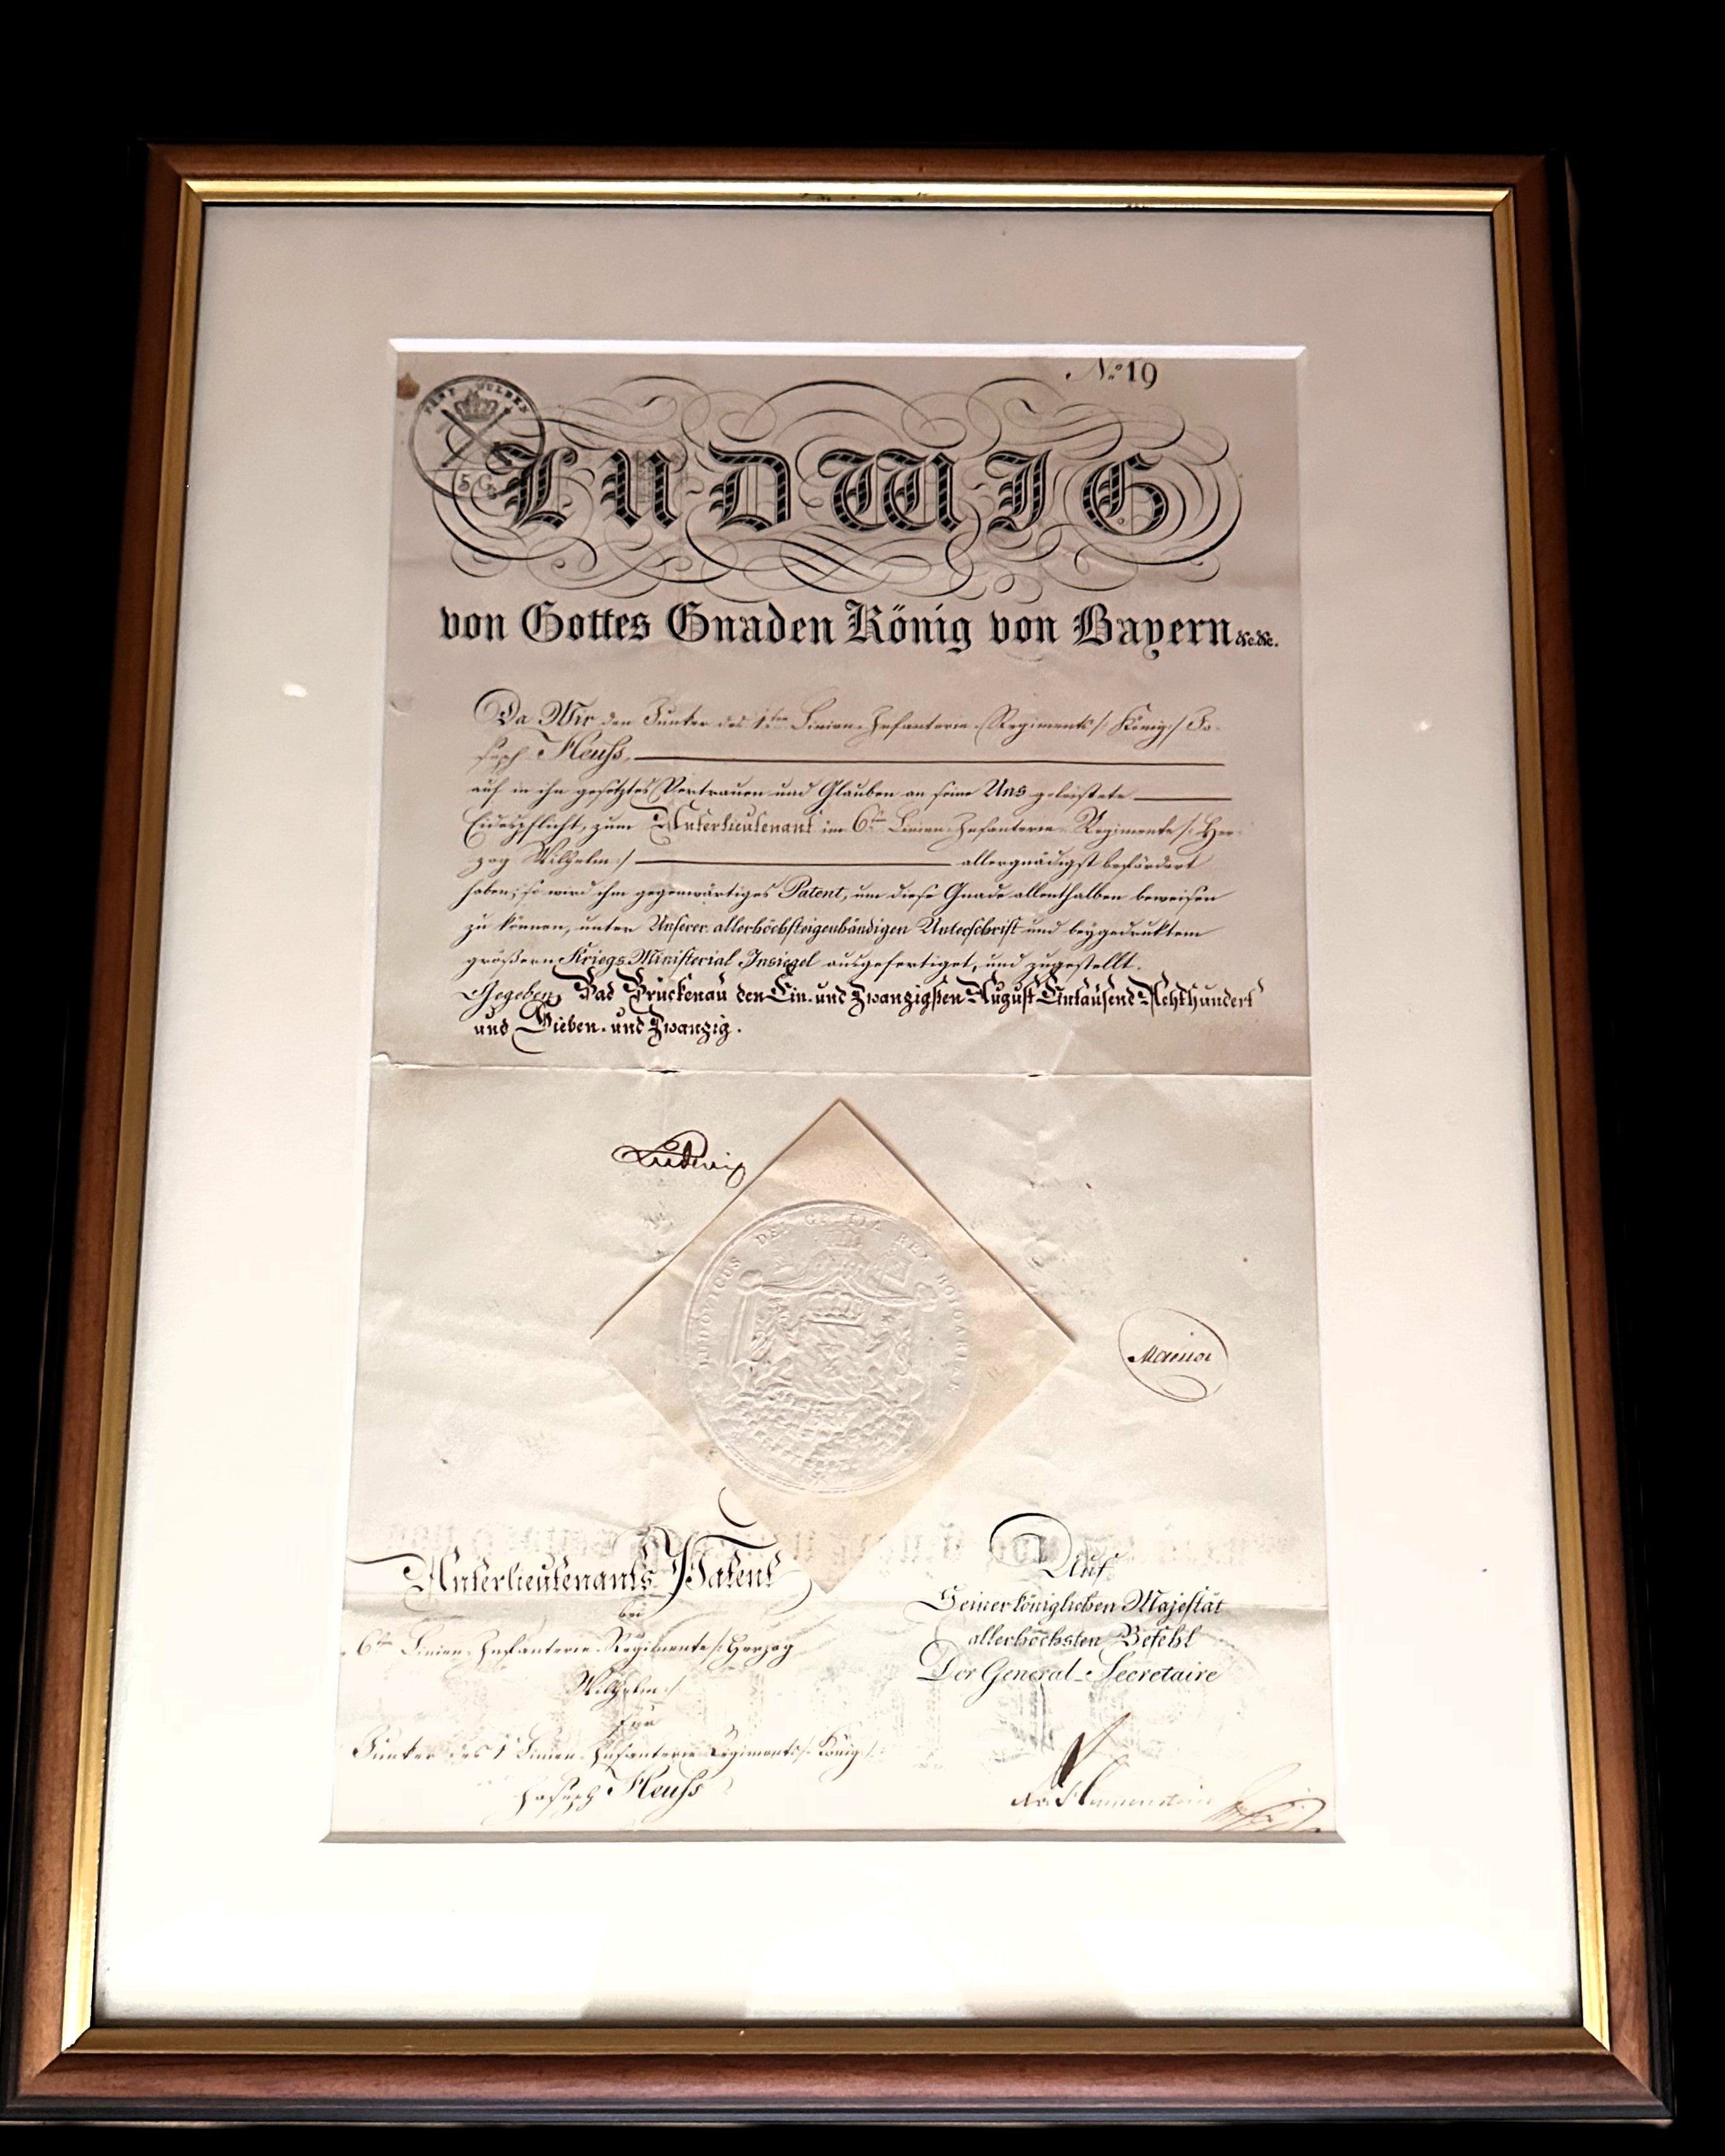 No. 19
FÜNF GULDEN
5 G.
LUDWIG
von Gottes Gnaden König von Bayern &c.&c.
Da Wir den Junker des 1ten Linien-Infanterie-Regiments /: König :/ Jo-
seph Heuss,
auf in ihn gesetztes Vertrauen und Glauben an seine Uns geleistete
Eidespflicht, zum Unterlieutenant im 6ten Linien-Infanterie-Regimente /: Her-
zog Wilhelm :/ allergnädigst befördert
haben; so wird ihm gegenwärtiges Patent, um diese Gnade allenthalben beweisen
zu können, unter Unserer allerhöchsteigenhändigen Unterschrift und beygedrucktem
größern Kriegs-Ministerial-Insiegel ausgefertiget, und zugestellt.
Gegeben, Bad Brückenau den Ein-und Zwanzigsten August Eintausend Achthundert
und Sieben-und Zwanzig.
Ludwig
LUDOVICUS DEI GRATIA REX BOIOARIAE
Unterlieutenants-Patent
bei
6ten Linien-Infanterie-Regimente /: Herzog
Wilhelm :/
für
Junker des 1ten Linien-Infanterie-Regiments /: König :/
Joseph Heuss
Auf
Seiner königlichen Majestät
allerhöchsten Befehl
Der General-Secretaire